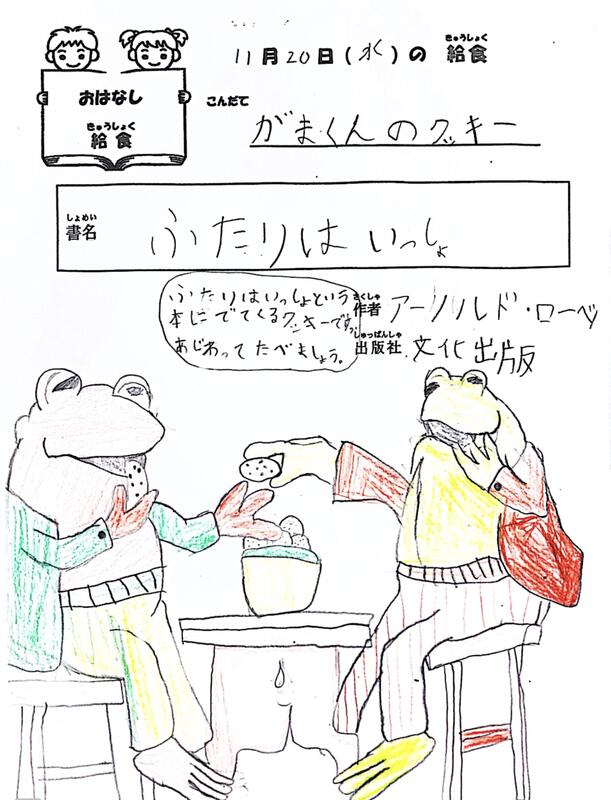 11月20日(水)の給食
きゅうしょく
おはなし
きゅうしょく
給食
こんだて
がまくんのクッキー
しょめい
書名
ふたりはいっしょ
ふたりはいっしょという
本にでてくるクッキーです。
あじわってたべましょう。
さくしゃ
作者 アーノルド・ローベル
しゅっぱんしゃ
出版社 文化出版